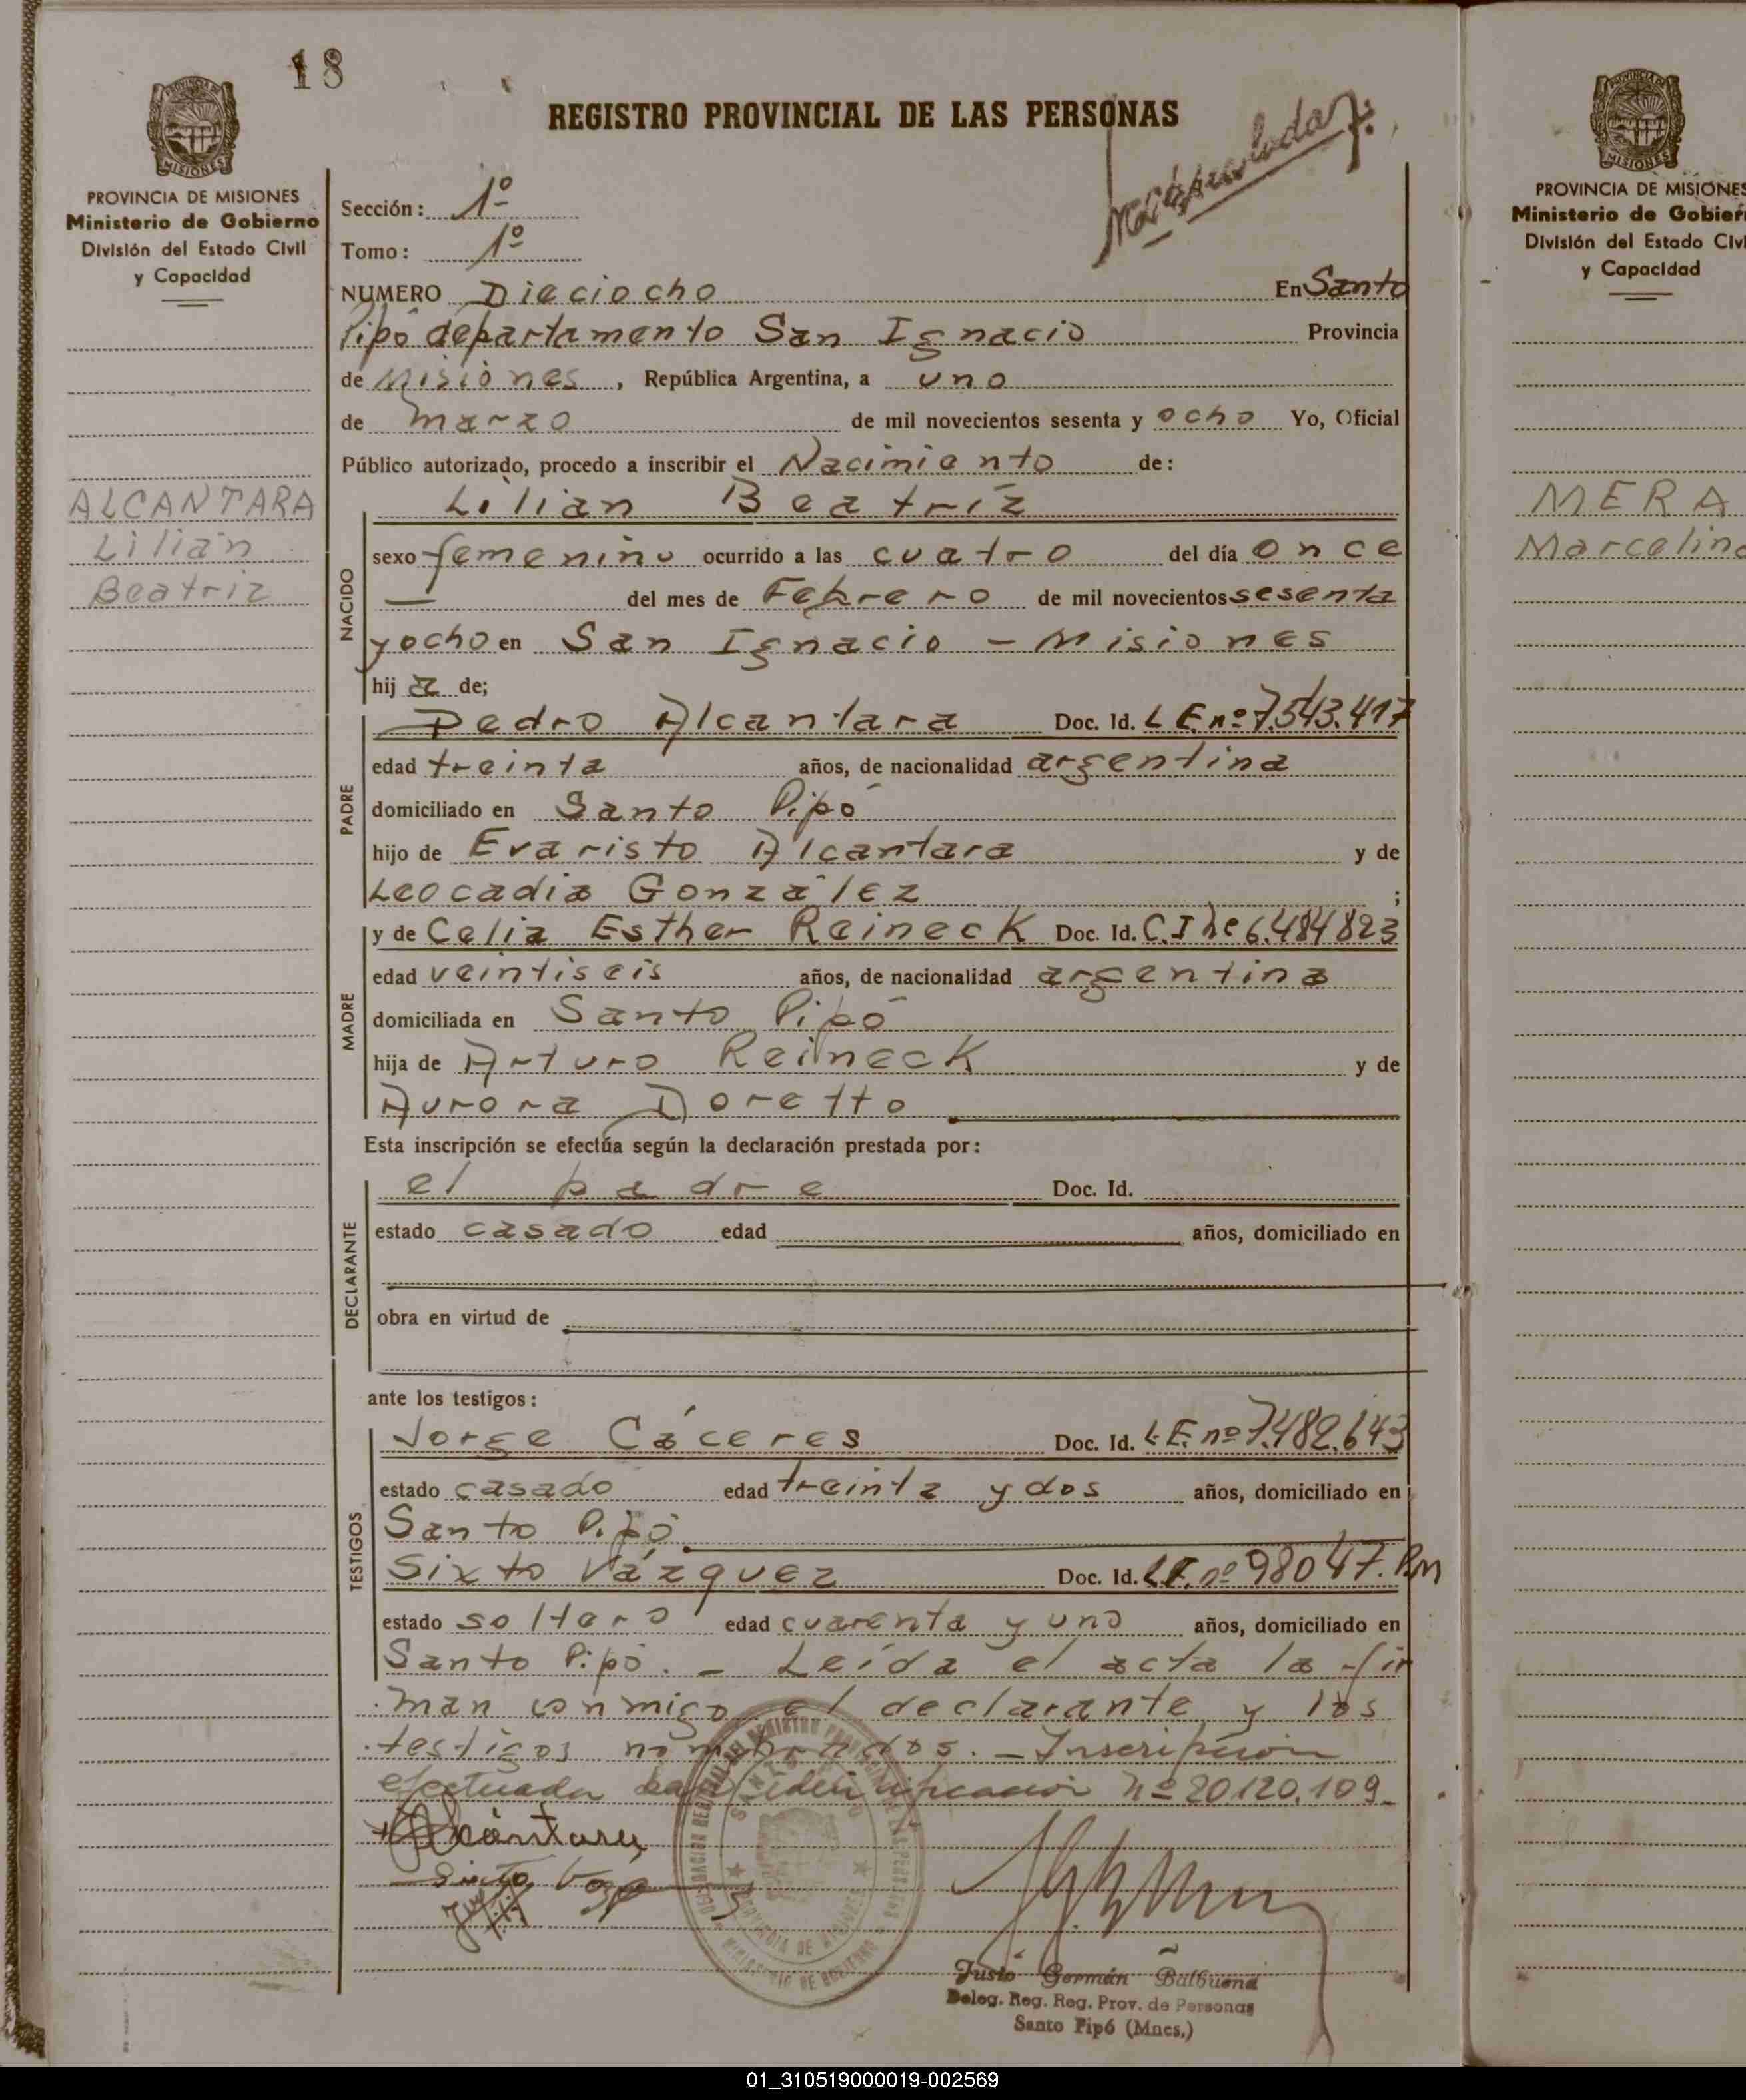 18
PROVINCIA DE MISIONES
Ministerio de Gobierno
División del Estado Civil
y Capacidad
ALCANTARA
Lilian
Beatriz
REGISTRO PROVINCIAL DE LAS PERSONAS
Sección: 1º
Tomo: 1º
NUMERO Dieciocho En Santo
Pipó departamento San Ignacio Provincia
de Misiones, República Argentina, a uno
de marzo de mil novecientos sesenta y ocho Yo, Oficial
Público autorizado, procedo a inscribir el Nacimiento de:
Lilian Beatriz
NACIDO
sexo femenino ocurrido a las cuatro del día once
— del mes de Febrero de mil novecientos sesenta
y ocho en San Ignacio - Misiones
hij a de;
PADRE
Pedro Alcantara Doc. Id. L.E. nº 7.543.417
edad treinta años, de nacionalidad argentina
domiciliado en Santo Pipó
hijo de Evaristo Alcantara y de
Leocadia González ;
MADRE
y de Celia Esther Reineck Doc. Id. C.I. 6.484823
edad veintiseis años, de nacionalidad argentina
domiciliada en Santo Pipó
hija de Arturo Reineck y de
Aurora Doretto
Esta inscripción se efectúa según la declaración prestada por:
DECLARANTE
el padre Doc. Id.
estado casado edad años, domiciliado en
obra en virtud de
ante los testigos:
TESTIGOS
Jorge Cáceres Doc. Id. L.E. nº 7.482.643
estado casado edad treinta y dos años, domiciliado en
Santo Pipó
Sixto Vázquez Doc. Id. L.E. nº 98047.
estado soltero edad cuarenta y uno años, domiciliado en
Santo Pipó. - Leída el acta la fir
man conmigo el declarante y los
testigos nombrados. - Inscripción
efectuada bajo identificación nº 20.120.109-
Alcántara
Sixto
Justo Germán Balbuena
Deleg. Reg. Reg. Prov. de Personas
Santo Pipó (Mnes.)
PROVINCIA DE MISIONES
Ministerio de Gobier
División del Estado Civi
y Capacidad
MERA
Marcelino
01_310519000019-002569